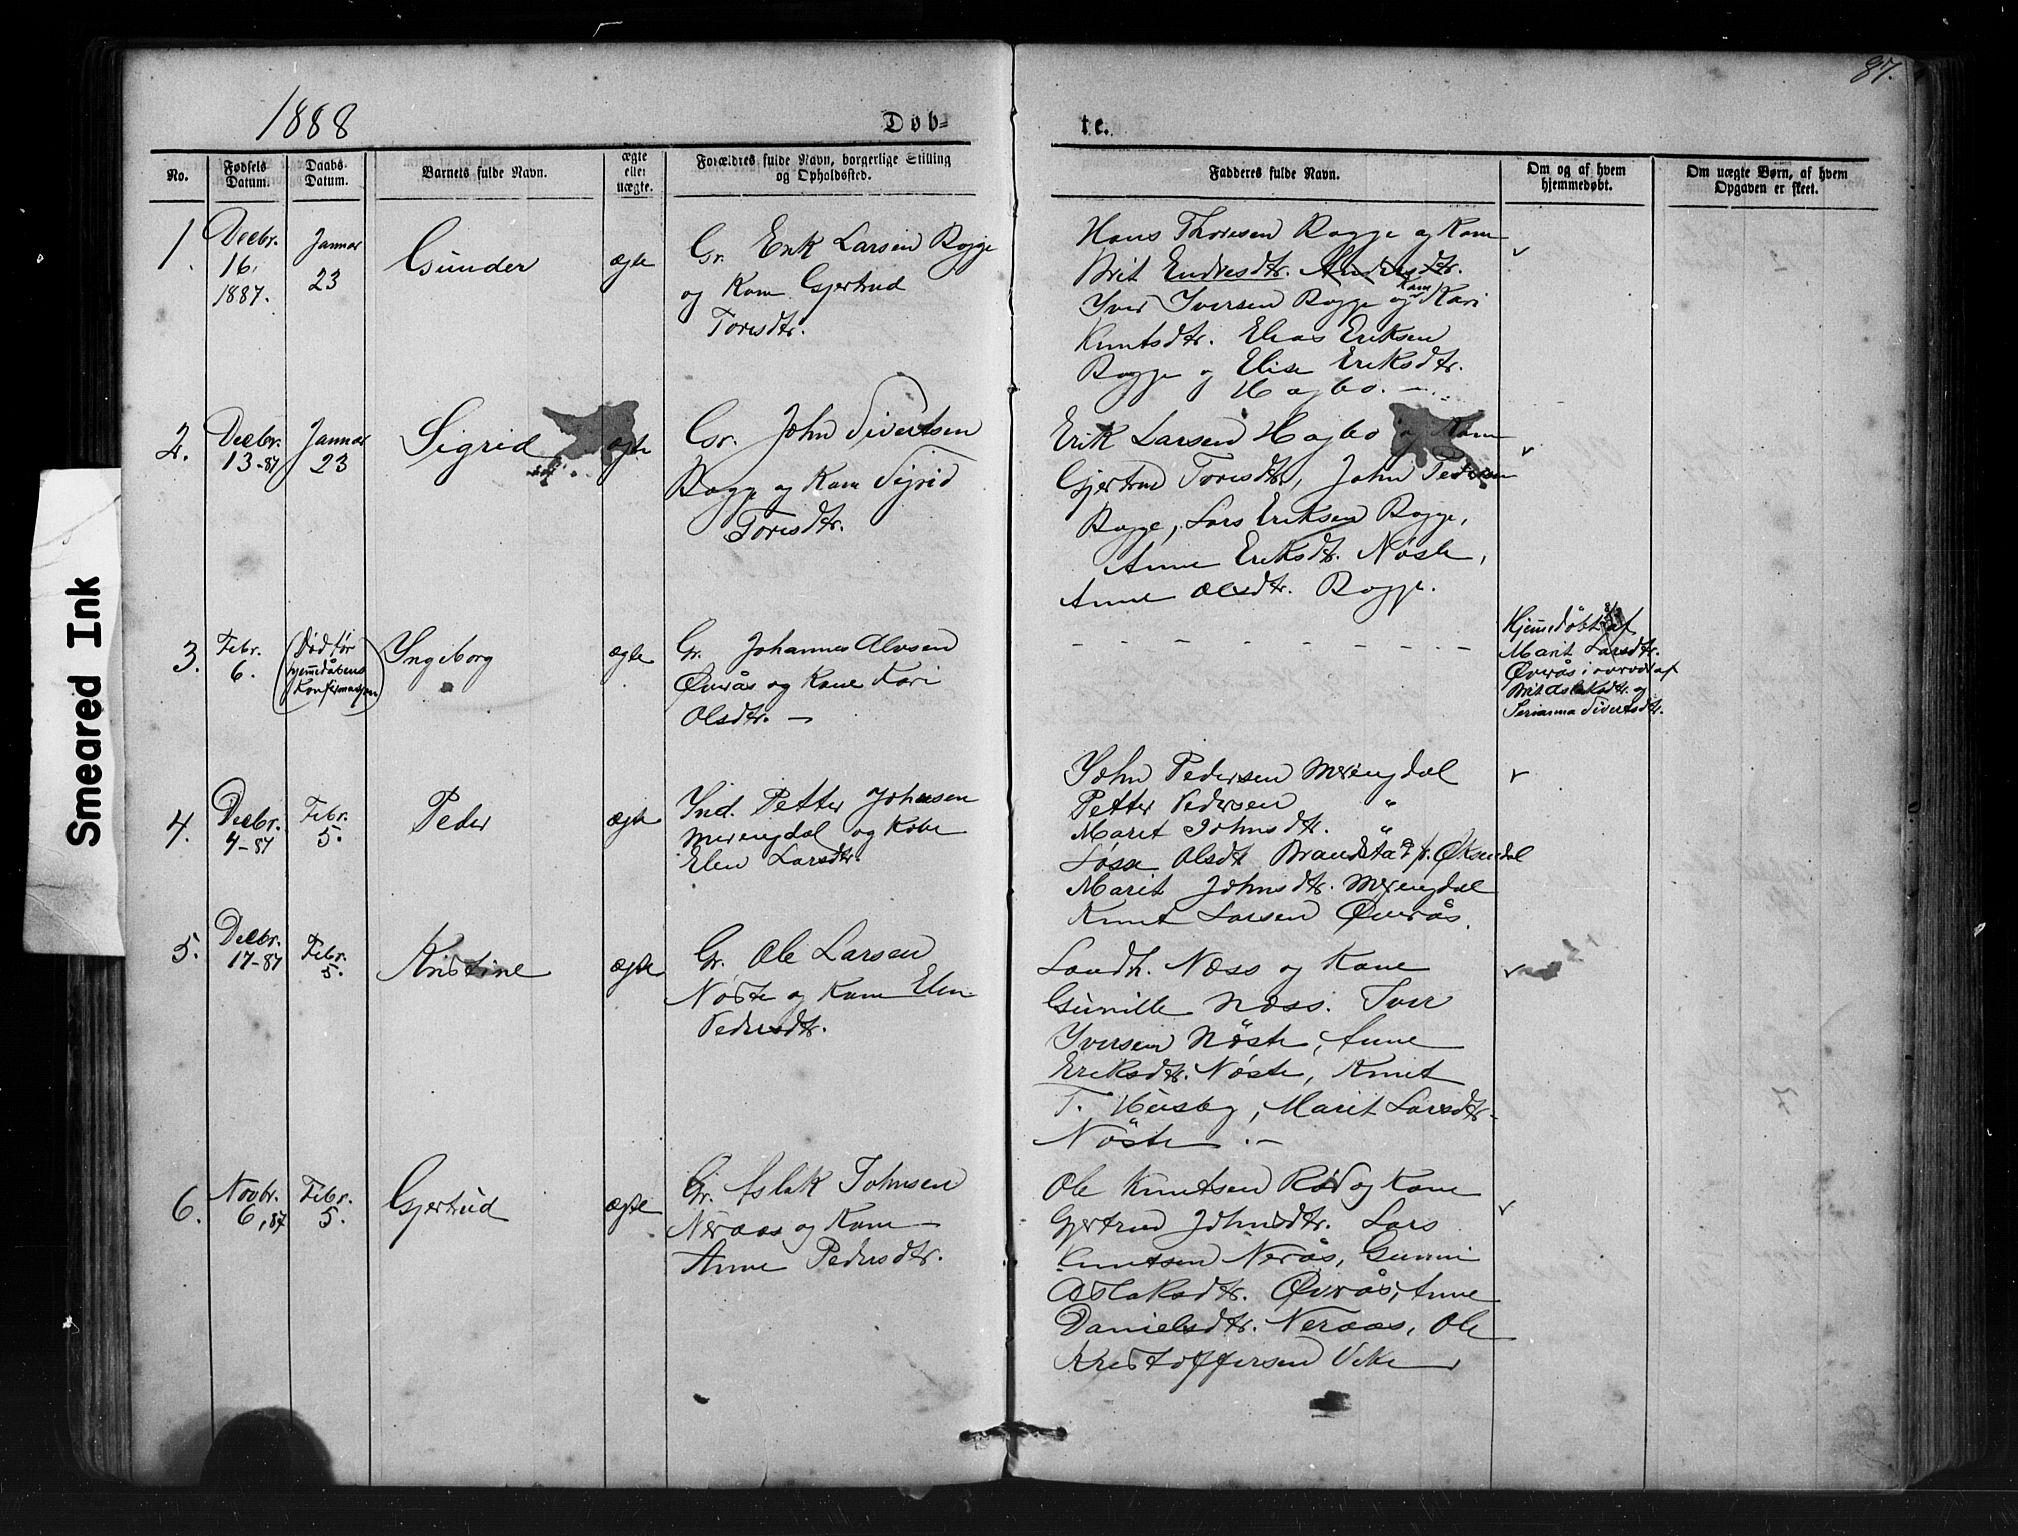 87.
1888
Døb-
te.
No.
Fødsels Datum.
Daabs-Datum.
Barnets fulde Navn.
ægte eller uægte.
Forældres fulde Navn, borgerlige Stilling og Opholdssted.
Fadderes fulde Navn.
Om og af hvem hjemmedøbt.
Om uægte Børn, af hvem Opgaven er skeet.
1.
Decbr.
16.
1887.
Januar
23
Gunder
ægte
Gr. Erik Larsen Bogge
og Kone Gjertrud
Toresdtr.
Hans Thoresen Bogge og Kone
Brit Endresdtr. Andersdtr.
Iver Iversen Bogge og Kone Kari
Knutsdtr. Elias Eriksen
Bogge og Elise Eriksdtr.
Hagbo. —
2.
Decbr.
13-87
Januar
23
Sigrid
ægte
Gr. John Sivertsen
Bogge og Kone Sigrid
Toresdtr.
Erik Larsen Hagbo og Kone
Gjertrud Toresdtr., John Pedersen
Bogge, Lars Eriksen Bogge,
Anne Eriksdtr. Nöste,
Anne Olsdtr. Bogge.
3.
Febr.
6.
(Död før
hjemmedåbens
Konfirmasjon)
Yngeborg
ægte
Gr. Johannes Olvsen
Øvrås og Kone Kari
Olsdtr. —
Hjemmedøbt af
Marit Larsdtr.
Øvrås i nærvær af
Brit Aslaksdtr. og
Serianna Sivertsdtr.
4.
Decbr.
4-87
Febr.
5.
Peder
ægte
Ind. Petter Johnsen
Meringdal og Kone
Elen Larsdtr.
John Pedersen Meringdal
Petter Pedersen "
Marit Johnsdtr. "
Olsdt Brandstad p. Øksendal
Marit Johnsdtr. Meringdal
Knut Larsen Øvrås.
5.
Decbr.
17-87
Febr.
5.
Kristine
ægte
Gr. Ole Larsen
Nöste og Kone Elen
Pedersdtr.
Landh. Næss og Kone
Gunille Næss. Iver
Iversen Nöste, Anne
Eriksdtr. Nöste, Knut
T. Husby, Marit Larsdtr.
Nöste. —
6.
Novbr.
6,87
Febr.
5.
Gjertrud
ægte
Gr. Aslak Johnsen
Neraas og Kone
Anne Pedersdtr.
Ole Knutsen Röd og Kone
Gjertrud Johnsdtr. Lars
Knutsen Nerås, Gunni
Aslaksdtr. Øvrås, Anne
Danielsdtr. Neraas, Ole
Kristoffersen Vike
Smeared Ink